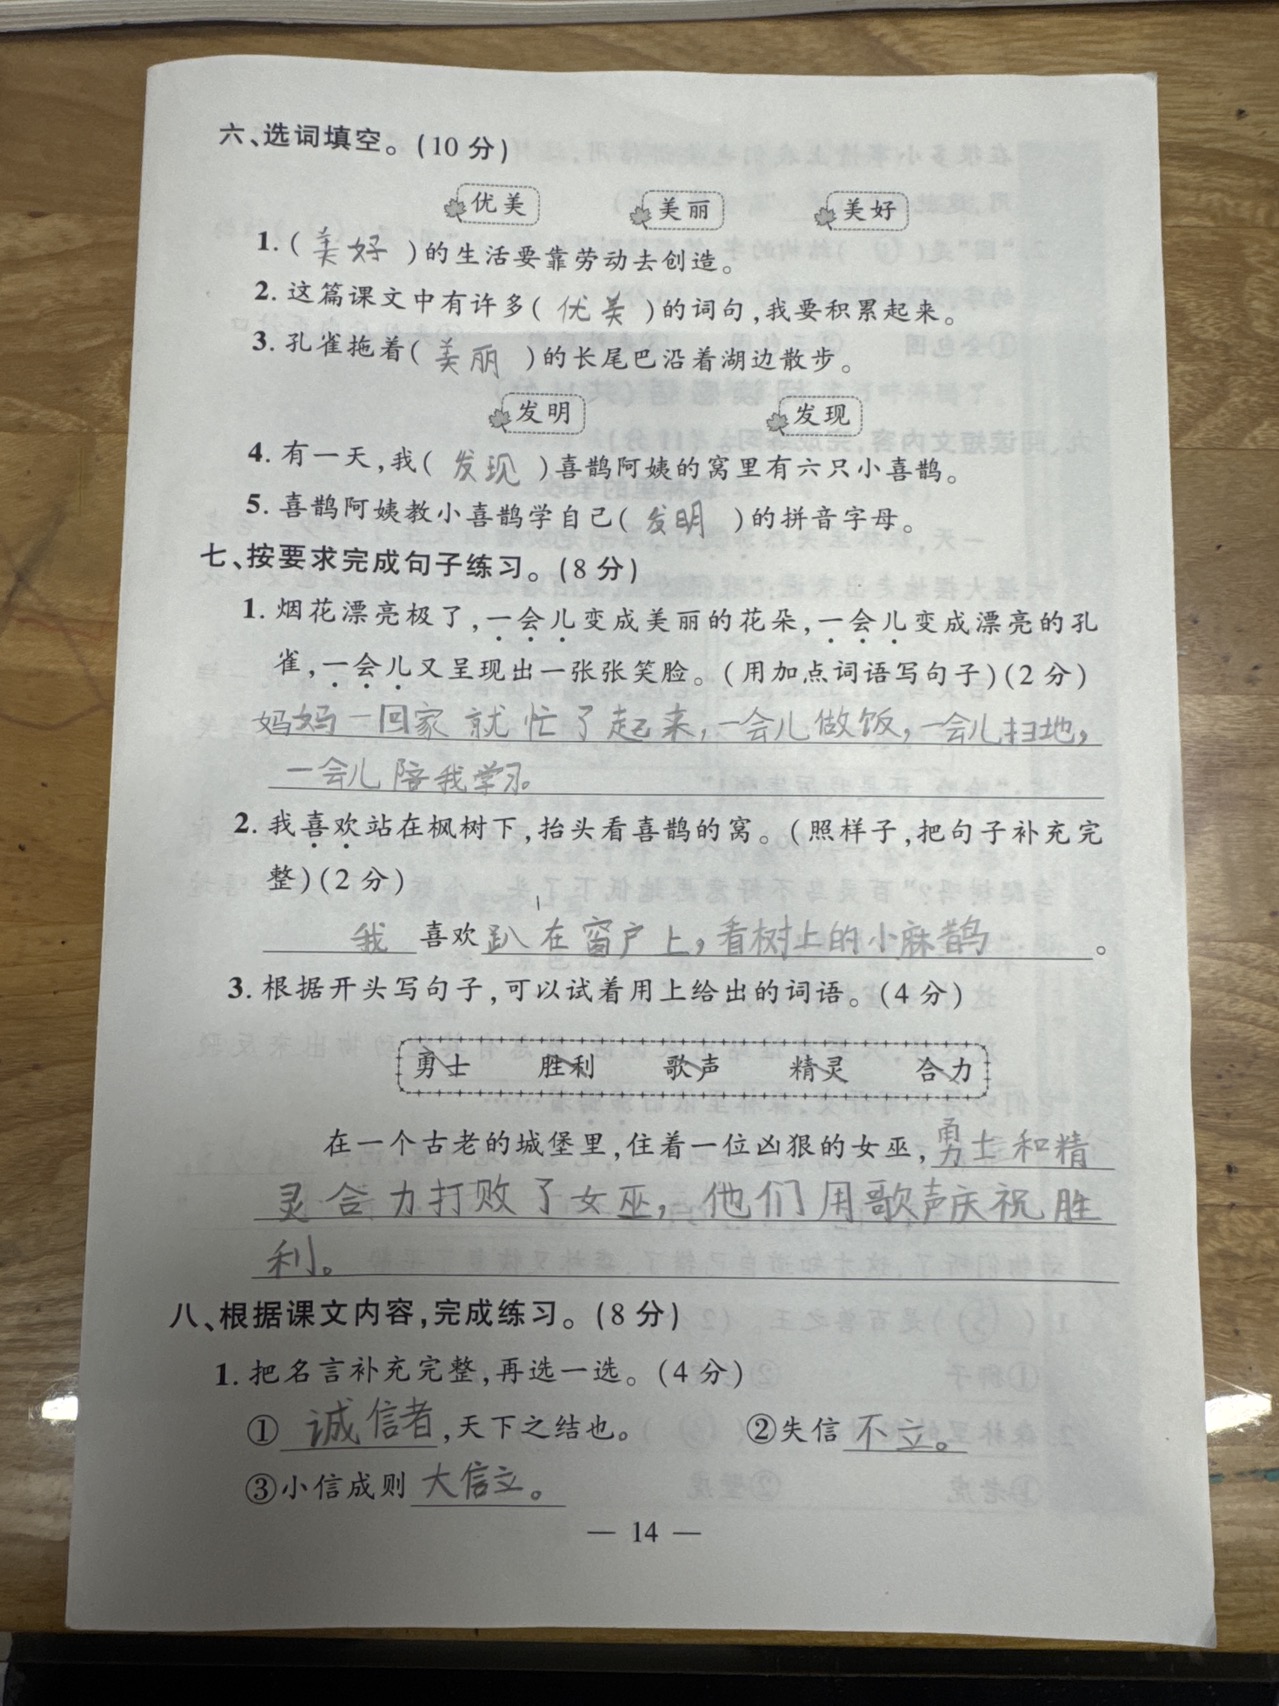 六、选词填空。(10 分)
优美 美丽 美好
1.( 美好 )的生活要靠劳动去创造。
2. 这篇课文中有许多( 优美 )的词句,我要积累起来。
3. 孔雀拖着( 美丽 )的长尾巴沿着湖边散步。
发明 发现
4. 有一天,我( 发现 )喜鹊阿姨的窝里有六只小喜鹊。
5. 喜鹊阿姨教小喜鹊学自己( 发明 )的拼音字母。
七、按要求完成句子练习。(8 分)
1. 烟花漂亮极了,一会儿变成美丽的花朵,一会儿变成漂亮的孔
雀,一会儿又呈现出一张张笑脸。(用加点词语写句子)(2 分)
妈妈一回家就忙了起来,一会儿做饭,一会儿扫地,
一会儿陪我学习。
2. 我喜欢站在枫树下,抬头看喜鹊的窝。(照样子,把句子补充完
整)(2 分)
我 喜欢趴在窗户上,看树上的小麻鹊 。
3. 根据开头写句子,可以试着用上给出的词语。(4 分)
勇士 胜利 歌声 精灵 合力
在一个古老的城堡里,住着一位凶狠的女巫,勇士和精
灵合力打败了女巫,他们用歌声庆祝胜
利。
八、根据课文内容,完成练习。(8 分)
1. 把名言补充完整,再选一选。(4 分)
① 诚信者,天下之结也。 ②失信不立。
③小信成则大信立。
— 14 —